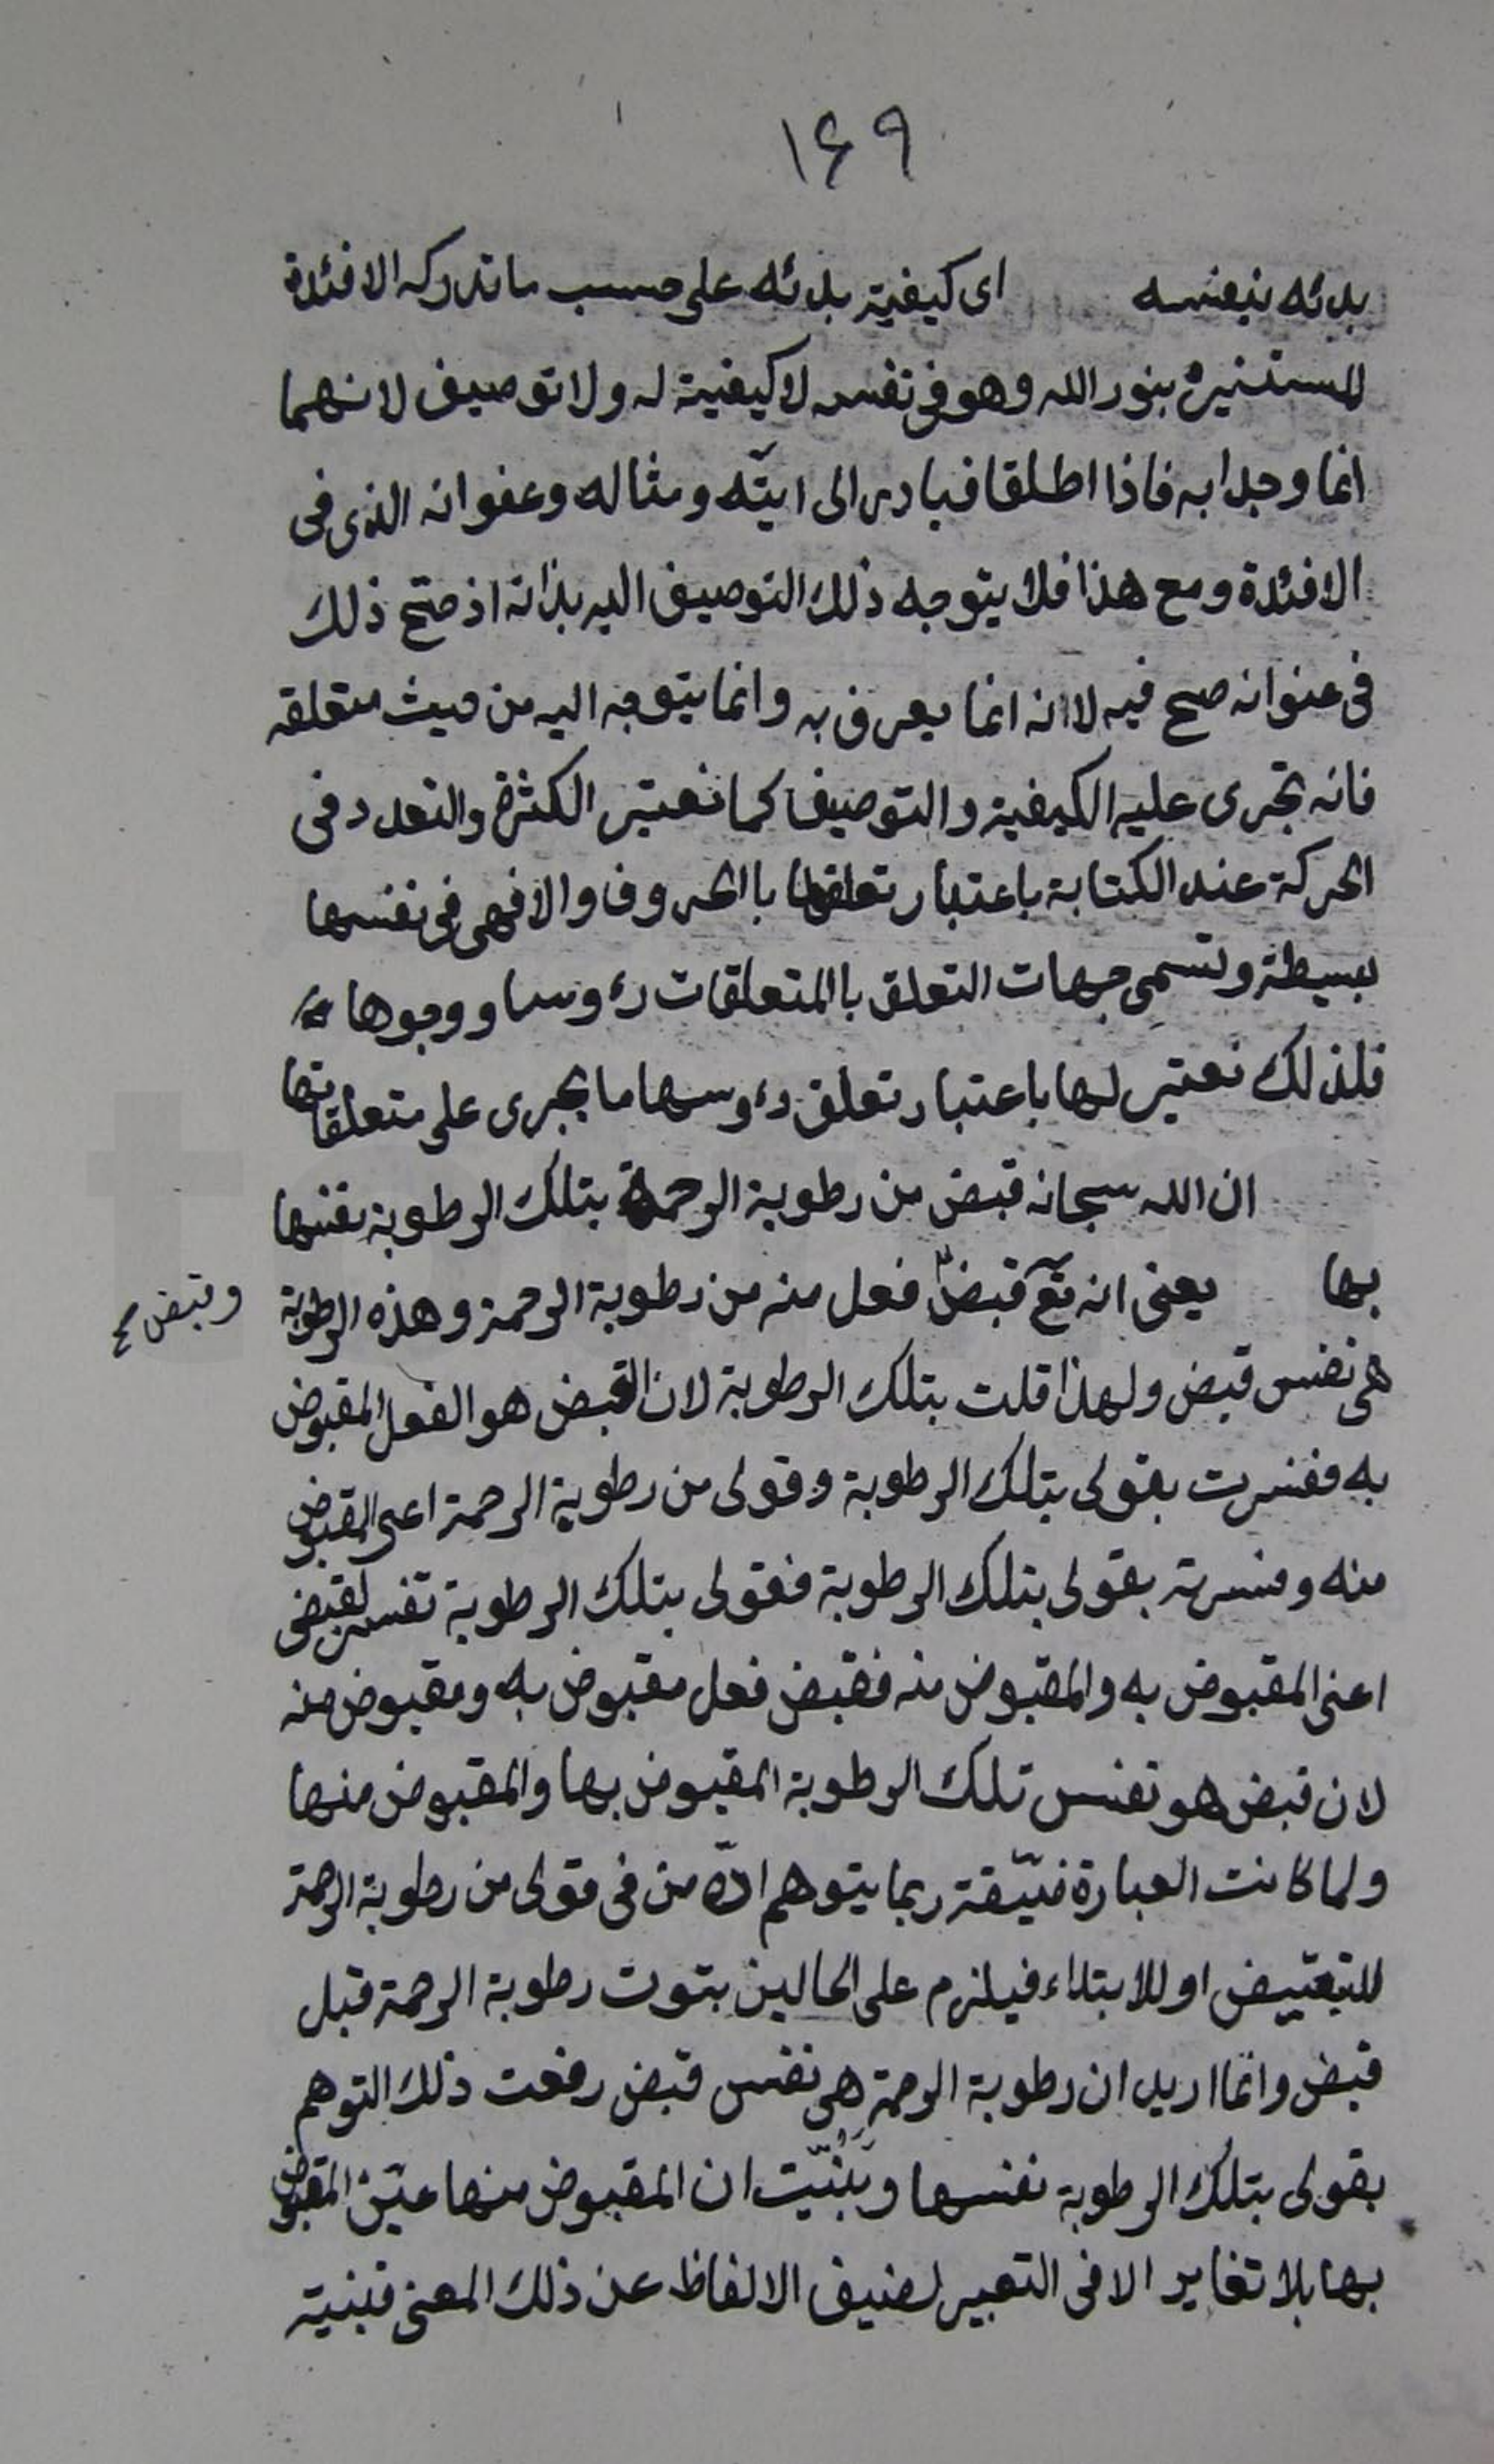 ١٤٩
بدئه بنفسه اى كيفية بدئه على حسب ما تدركه الافئدة
المستنيرة بنور الله وهو فى نفسه لا كيفية له ولا توصيف لانهما
انما وجدا به فاذا اطلقا فبادر الى ايتّه ومثاله وعنوانه الذى فى
الافئدة ومع هذا فلا يتوجه ذلك التوصيف اليه بذاته اذ صح ذلك
فى عنوانه صح فيه لا انه انما يعرف به وانما يتوجه اليه من حيث متعلقه
فانه تجرى عليه الكيفية والتوصيف كما نعتبر الكثرة والتعدد فى
الحركة عند الكتابة باعتبار تعلقها باالحروف والا فهى فى نفسها
بسيطة وتسمى جهات التعلق باالمتعلقات رءوسا ووجوها
فلذلك نعتبر لها باعتبار تعلق رءوسها ما يجرى على متعلقاتها
ان الله سبحانه قبض من رطوبة الرحمة بتلك الرطوبة نفسها
بها يعنى انه تع قبض فعل منه من رطوبة الرحمة وهذه الرطوبة
وقبض
هى نفس قبض ولهذا قلت بتلك الرطوبة لان القبض هو الفعل المقبوض
به ففسرت بقولى بتلك الرطوبة وقولى من رطوبة الرحمة اعنى المقبوض
منه وفسرته بقولى بتلك الرطوبة فقولى بتلك الرطوبة تفسير لقبض
اعنى المقبوض به والمقبوض منه فقبض فعل مقبوض به ومقبوض منه
لان قبض هو نفس تلك الرطوبة المقبوض بها والمقبوض منها
ولما كانت العبارة ضيّقة ربما يتوهم انّ من فى قولى من رطوبة الرحمة
للتبعيض او للابتداء فيلزم على الحالين ثبوت رطوبة الرحمة قبل
قبض وانما اريد ان رطوبة الرحمة هى نفس قبض رفعت ذلك التوهم
بقولى بتلك الرطوبة نفسها وبَيّنت ان المقبوض منها عين المقبوض
بها بلا تغاير الا فى التعبير لضيق الالفاظ عن ذلك المعنى